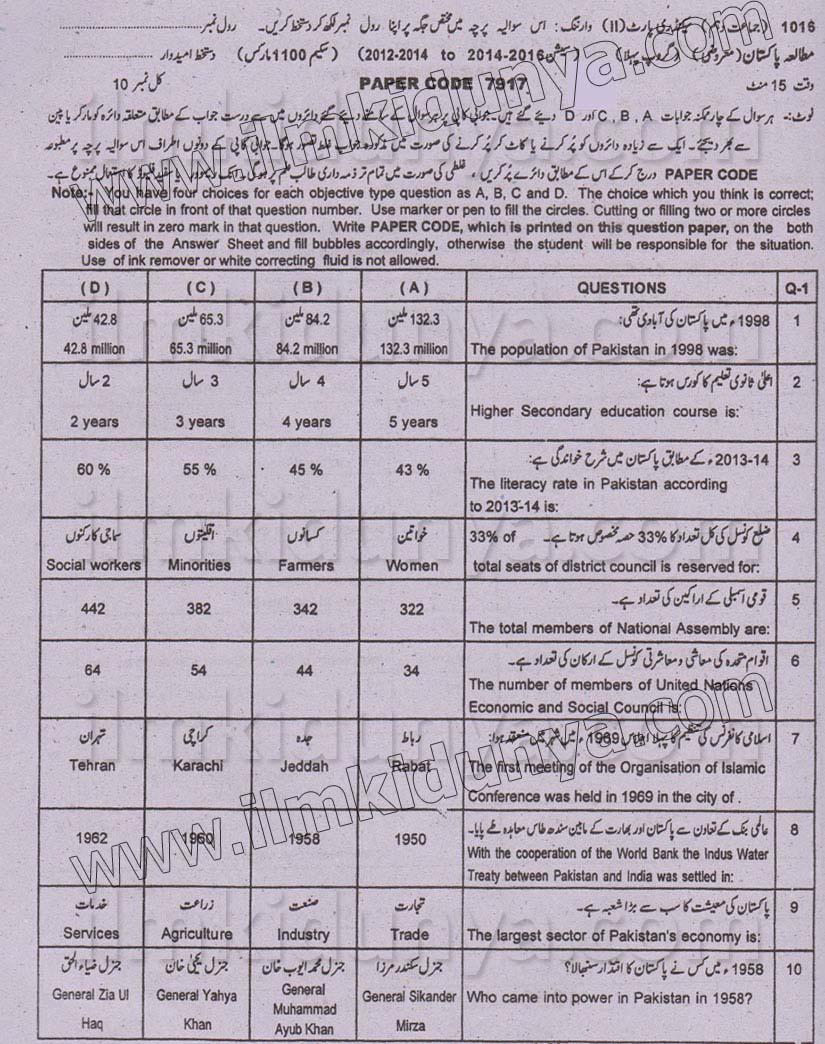 1016 (جماعت دہم) سیکنڈری پارٹ (II) وارننگ : اس سوالیہ پرچہ میں مختص جگہ پر اپنا رول نمبر لکھ کر دستخط کریں۔ رول نمبر
مطالعہ پاکستان (معروضی) (گروپ پہلا) (سیشن 2014-2016 to 2012-2014) (سکیم 1100 مارکس) دستخط امیدوار
وقت 15 منٹ PAPER CODE 7917 کل نمبر 10
نوٹ:- ہر سوال کے چار ممکنہ جوابات A ، B ، C اور D دیے گئے ہیں۔ جوابی کاپی پر ہر سوال کے سامنے دیے گئے دائروں میں سے درست جواب کے مطابق متعلقہ دائرہ کو مارکر یا پین
سے بھر دیجئے۔ ایک سے زیادہ دائروں کو پُر کرنے یا کاٹ کر پُر کرنے کی صورت میں مذکورہ جواب غلط تصور ہوگا۔ جوابی کاپی کے دونوں اطراف اس سوالیہ پرچہ پر مطبوعہ
PAPER CODE درج کر کے اس کے مطابق دائرے پُر کریں ، غلطی کی صورت میں تمام تر ذمہ داری طالب علم پر ہوگی۔ انک ریموور یا سفید فلیوڈ کا استعمال ممنوع ہے۔
Note:- You have four choices for each objective type question as A, B, C and D. The choice which you think is correct;
fill that circle in front of that question number. Use marker or pen to fill the circles. Cutting or filling two or more circles
will result in zero mark in that question. Write PAPER CODE, which is printed on this question paper, on the both
sides of the Answer Sheet and fill bubbles accordingly, otherwise the student will be responsible for the situation.
Use of ink remover or white correcting fluid is not allowed.
(D) (C) (B) (A) QUESTIONS Q-1
42.8 ملین 65.3 ملین 84.2 ملین 132.3 ملین 1998ء میں پاکستان کی آبادی تھی: 1
42.8 million 65.3 million 84.2 million 132.3 million The population of Pakistan in 1998 was:
2 سال 3 سال 4 سال 5 سال اعلیٰ ثانوی تعلیم کا کورس ہوتا ہے: 2
2 years 3 years 4 years 5 years Higher Secondary education course is:
60 % 55 % 45 % 43 % 2013-14ء کے مطابق پاکستان میں شرح خواندگی ہے: 3
The literacy rate in Pakistan according
to 2013-14 is:
سماجی کارکنوں اقلیتوں کسانوں خواتین ضلع کونسل کی کل تعداد کا 33% حصہ مخصوص ہوتا ہے۔ 33% of 4
Social workers Minorities Farmers Women total seats of district council is reserved for:
442 382 342 322 قومی اسمبلی کے اراکین کی تعداد ہے۔ 5
The total members of National Assembly are:
64 54 44 34 اقوام متحدہ کی معاشی و معاشرتی کونسل کے ارکان کی تعداد ہے۔ 6
The number of members of United Nations
Economic and Social Council is:
تہران کراچی جدہ رباط اسلامی کانفرنس کی تنظیم کا پہلا اجلاس 1969ء میں شہر میں منعقد ہوا: 7
Tehran Karachi Jeddah Rabat The first meeting of the Organisation of Islamic
Conference was held in 1969 in the city of .
1962 1960 1958 1950 عالمی بنک کے تعاون سے پاکستان اور بھارت کے مابین سندھ طاس معاہدہ طے پایا۔ 8
With the cooperation of the World Bank the Indus Water
Treaty between Pakistan and India was settled in:
خدمات زراعت صنعت تجارت پاکستان کی معیشت کا سب سے بڑا شعبہ ہے۔ 9
Services Agriculture Industry Trade The largest sector of Pakistan's economy is:
جنرل ضیاء الحق جنرل یحییٰ خان جنرل محمد ایوب خان جنرل سکندر مرزا 1958ء میں کس نے پاکستان کا اقتدار سنبھالا؟ 10
General Zia Ul Haq General Yahya Khan General Muhammad Ayub Khan General Sikander Mirza Who came into power in Pakistan in 1958?
www.ilmkidunya.com
www.ilmkidunya.com
ilmkidunya.com